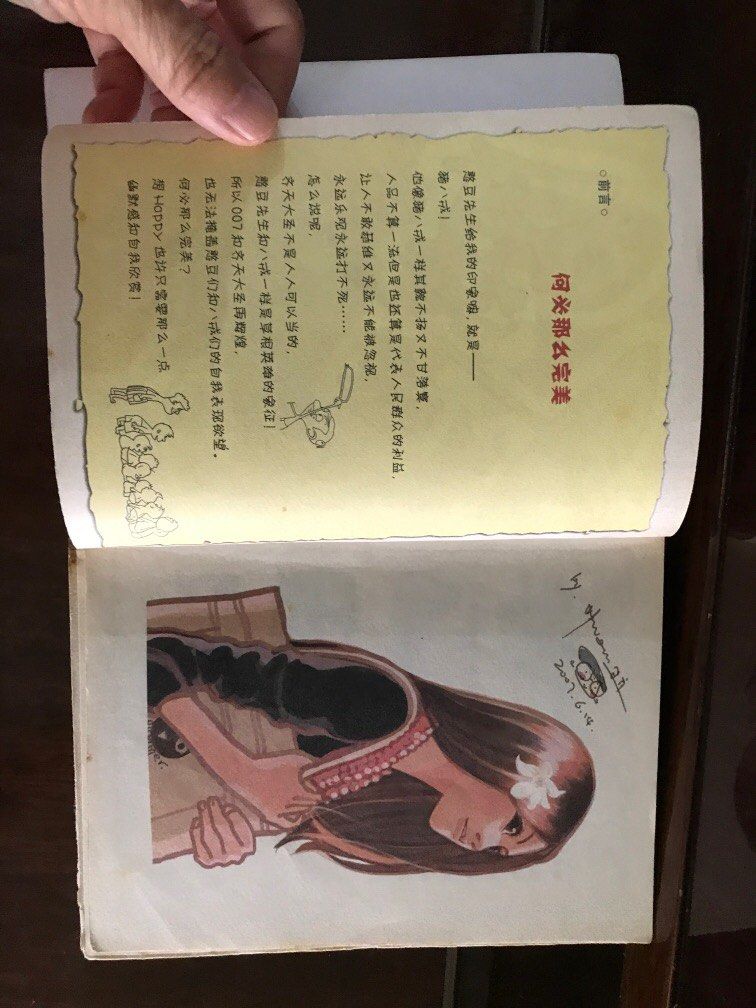 ○前言○
何必那么完美
憨豆先生给我的印象嘛，就是——
猪八戒！
他像猪八戒一样其貌不扬又不甘落寞，
人品不算一流但是也还算是代表人民群众的利益，
让人不敢恭维又永远不能被忽视，
永远乐观永远打不死……
怎么说呢，
齐天大圣不是人人可以当的，
憨豆先生和八戒一样是草根英雄的象征！
所以007和齐天大圣再辉煌，
也无法掩盖憨豆们和八戒们的自我表现欲望。
何必那么完美？
想Happy也许只需要那么一点
幽默感和自我欣赏！
by.
2007.6.14.